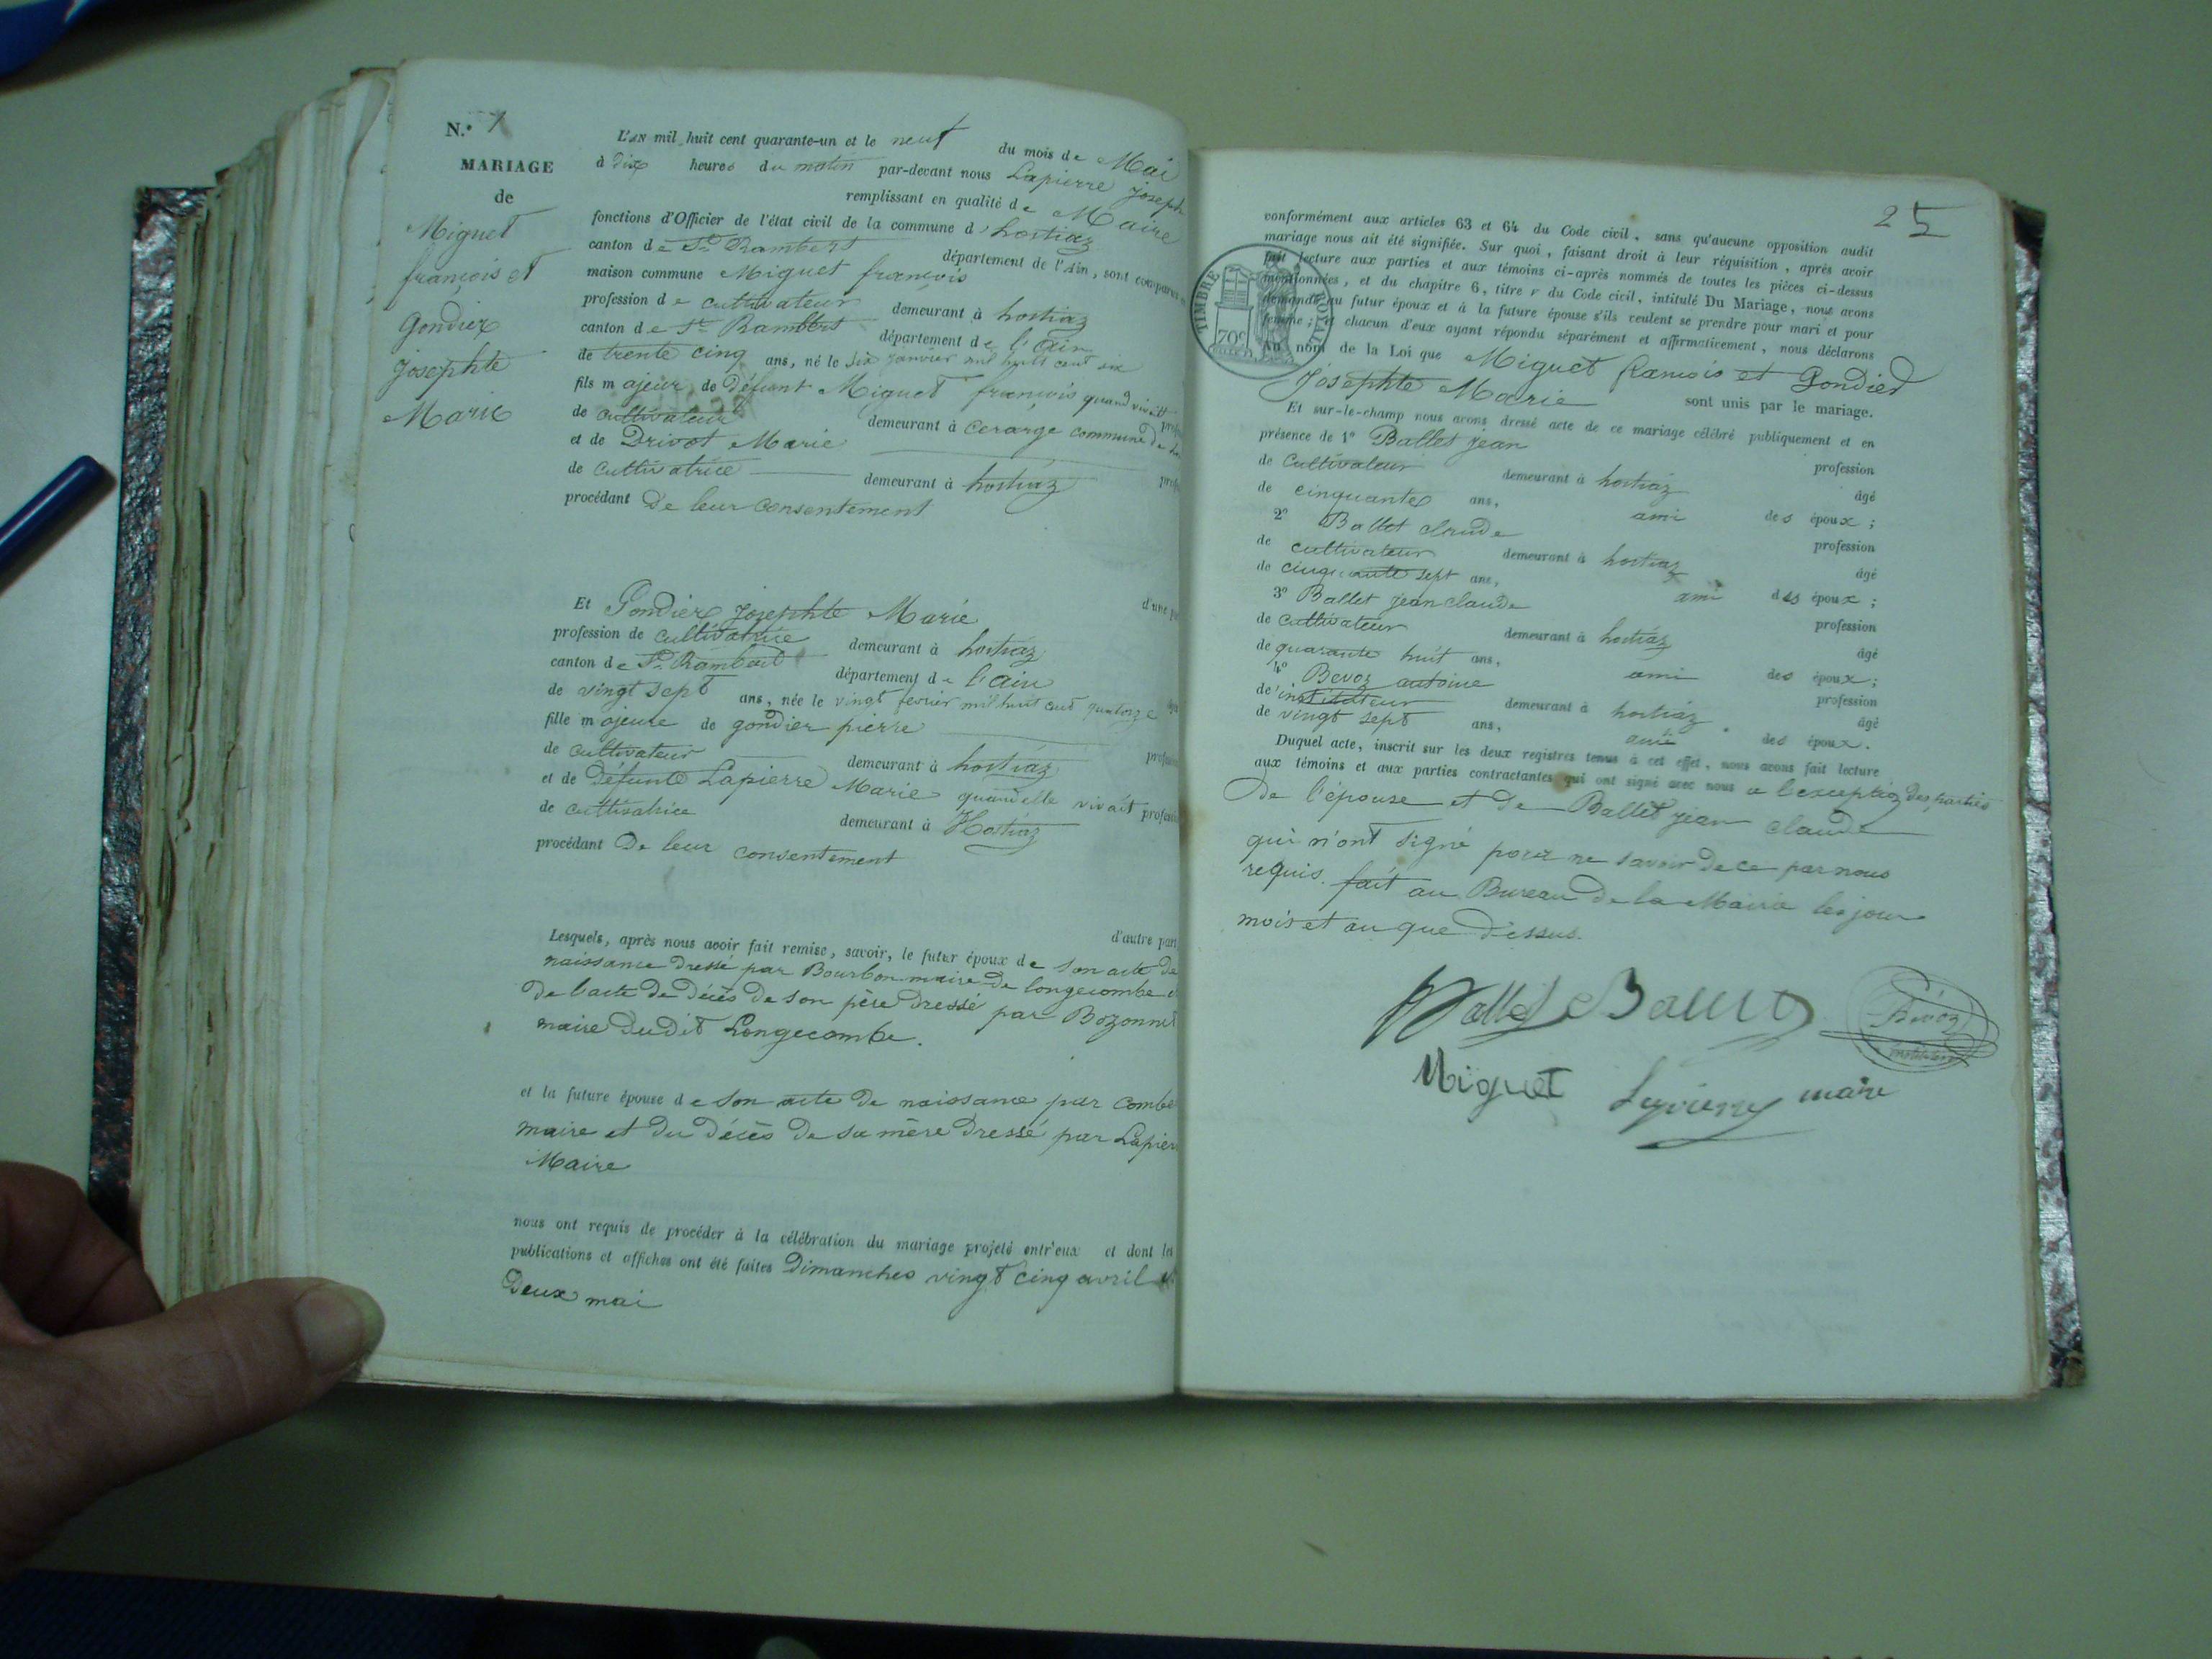 N.º 7
MARIAGE
de
Miguet
françois et
Gondier
Josephte
Marie
L'AN mil huit cent quarante-un et le neuf du mois de Mai
à dix heures du matin par-devant nous Lapierre Joseph
remplissant en qualité de Maire
fonctions d'Officier de l'état civil de la commune d'hostiaz
canton de St Rambert département de l'Ain, sont comparus
maison commune Miguet françois
profession de cultivateur demeurant à hostiaz
canton de St Rambert département de l'ain
de trente cinq ans, né le six janvier mil huit cent six
fils majeur de défunt Miguet françois quand vivait
de cultivateur demeurant à cerarge commune de
et de Drivot Marie
de cultivatrice demeurant à hostiaz
procédant De leur consentement
d'une
Et Gondier Josephte Marie
profession de cultivatrice demeurant à hostiaz
canton de St Rambert département de l'ain
de vingt sept ans, née le vingt fevrier mil huit cent quatorze
fille majeure de gondier pierre
de cultivateur demeurant à hostiaz
et de Défunte Lapierre Marie quand elle vivait
de cultivatrice demeurant à Hostiaz
procédant De leur consentement
d'autre part
Lesquels, après nous avoir fait remise, savoir, le futur époux de son acte de
naissance dressé par Bourbon maire de longecombe
De l'acte de décès de son père dressé par Bozonnet
maire dudit Longecombe.
et la future épouse de son acte de naissance par Combe
maire et du décès de sa mère dressé par
Maire
nous ont requis de procéder à la célébration du mariage projeté entr'eux et dont les
publications et affiches ont été faites Dimanches vingt cinq avril
Deux mai
25
TIMBRE ROYAL
70c
conformément aux articles 63 et 64 du Code civil, sans qu'aucune opposition audit
mariage nous ait été signifiée. Sur quoi, faisant droit à leur réquisition, après avoir
fait lecture aux parties et aux témoins ci-après nommés de toutes les pièces ci-dessus
mentionnées, et du chapitre 6, titre v du Code civil, intitulé Du Mariage, nous avons
demandé au futur époux et à la future épouse s'ils veulent se prendre pour mari et pour
femme; et chacun d'eux ayant répondu séparément et affirmativement, nous déclarons
Au nom de la Loi que Miguet francois et Gondier
Josephte Marie sont unis par le mariage.
Et sur-le-champ nous avons dressé acte de ce mariage célébré publiquement et en
présence de 1º Ballet Jean profession
de cultivateur demeurant à hostiaz âgé
de cinquante ans, ami des époux;
2º Ballet claude profession
de cultivateur demeurant à hostiaz âgé
de cinquante sept ans, ami des époux;
3º Ballet jean claude profession
de cultivateur demeurant à hostiaz âgé
de quarante huit ans, ami des époux;
4º Bevoz antoine profession
de instituteur demeurant à hostiaz âgé
de vingt sept ans, ami des époux.
Duquel acte, inscrit sur les deux registres tenus à cet effet, nous avons fait lecture
aux témoins et aux parties contractantes qui ont signé avec nous a des parties
De l'épouse et de Ballet jean claude
qui n'ont signé pour ne savoir de ce par nous
requis. fait au Bureau de la Mairie les jour
mois et an que Dessus.
Ballet Ballet Bévoz
instituteur
Miguet Lapierre maire